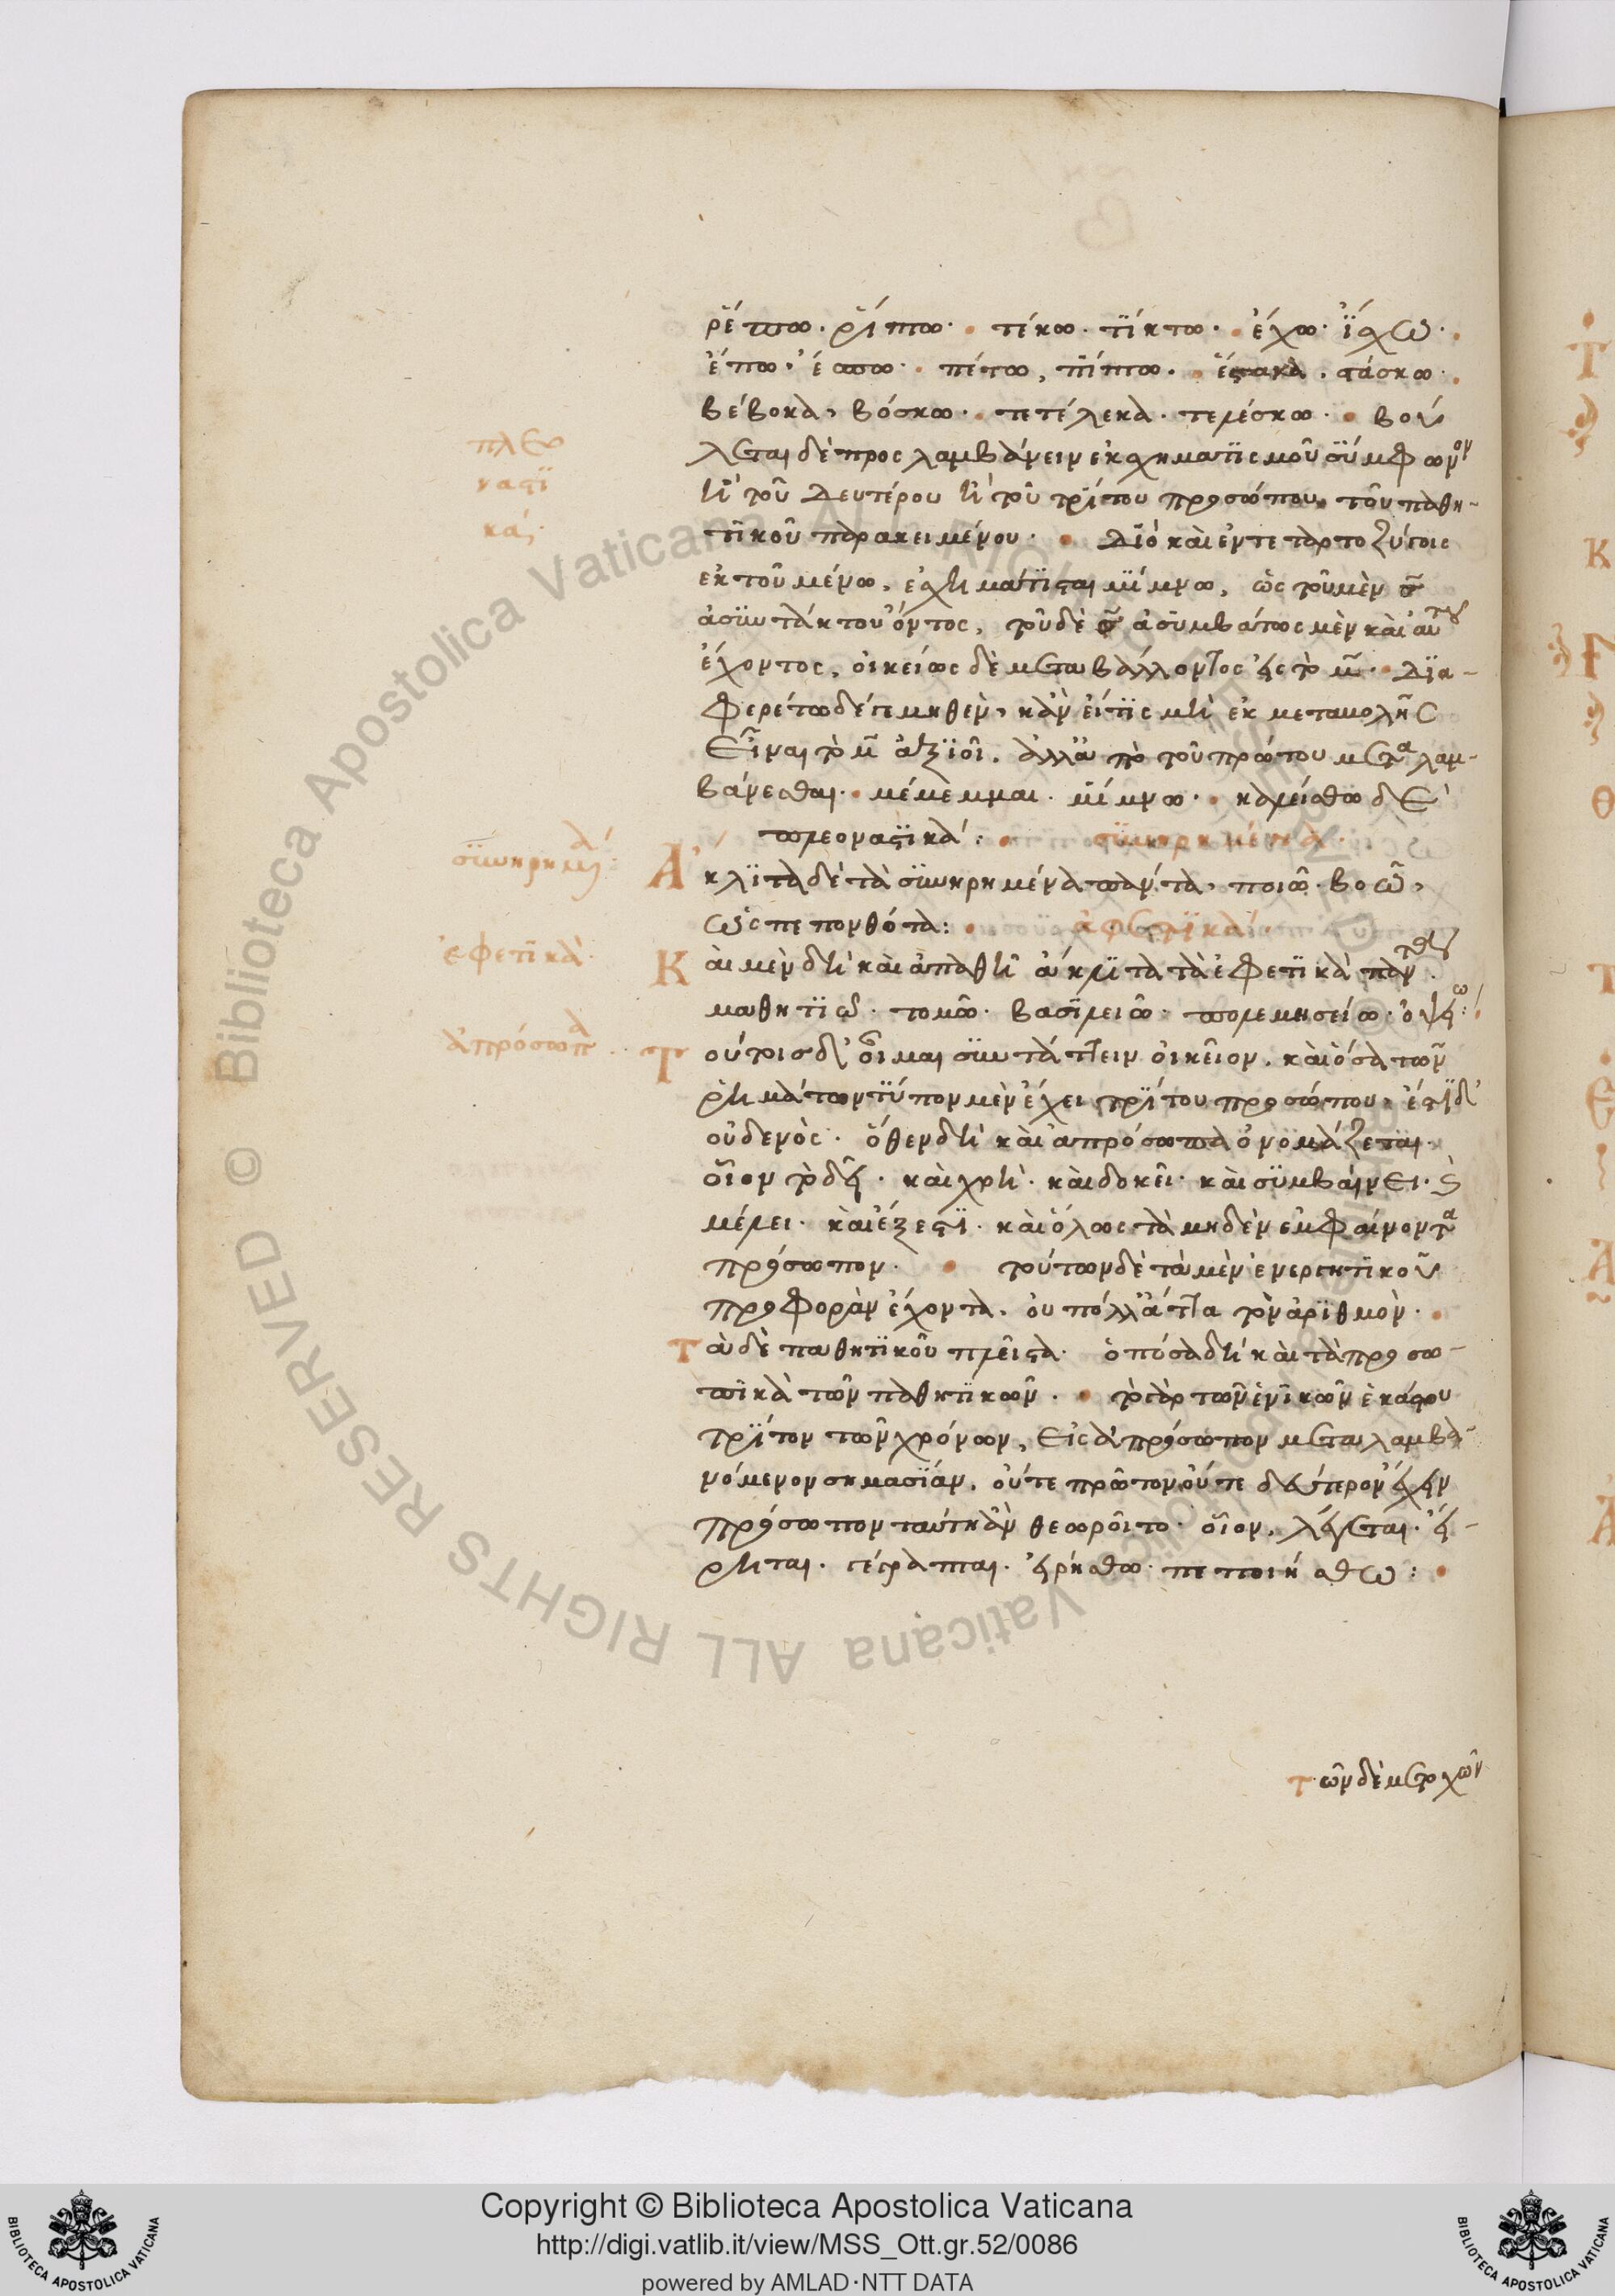 ῥέπω. ῥίπτω. τέκω. τίκτω. ἔχω. ἴσχω.
ἔπω. ἔσπω. πέτω, πίπτω. ἔστακα. στάσκω.
βέβοκα, βόσκω. τετέλεκα. τελέσκω. βού
λεται δὲ προσλαμβάνειν ἐκ σχηματισμοῦ σύμφωνον
ἢ τοῦ δευτέρου ἢ τοῦ τρίτου προσώπου τοῦ παθη-
τικοῦ παρακειμένου. Διό καὶ ἐν τεταρτοζύγοις
ἐκ τοῦ μένω, ἐσχημάτισται μίμνω, ὡς τοῦ μὲν
ἀσυντάκτου ὄντος, τοῦ δὲ ἀσυμβάτως μὲν καὶ αὐτοῦ
ἔχοντος, οἰκείως δὲ μεταβάλλοντος εἰς τὸ μ. Δια-
φερέτω δέ τι μηθὲν, κἂν εἴ τις μὴ ἐκ μεταβολῆς
εἶναι τὸ μ ἀξιοῖ. ἀλλὰ ἀπὸ τοῦ πρώτου μεταλαμ-
βάνεσθαι. μέμεμμαι. μίμνω. καλείσθω δὲ
πλεοναστικά: συνῃρημένα.
πλεο
ναστι
κά.
συνῃρημένα:
Ἄκλιτα δὲ τὰ συνῃρημένα πάντα, ποιῶ. βοῶ,
ὡς πεπονθότα: ἐφετικά.
ἐφετικά.
Καὶ μὲν δὴ καὶ ἀπαθῆ ἄκλιτα τὰ ἐφετικὰ
μαθητιῶ. τομῶ. βασιλειῶ. πολεμησείω. ὀψείω:
ἀπρόσωπα.
Τούτοις δ' οἶμαι συντάττειν οἰκεῖον, καὶ ὅσα τῶν
ῥημάτων τύπον μὲν ἔχει τρίτου προσώπου, ἔστι δ'
οὐδενὸς. ὅθεν δὴ καὶ ἀπρόσωπα ὀνομάζεται.
οἷον τὸ δεῖ. καὶ χρή. καὶ δοκεῖ. καὶ συμβαίνει. καὶ
μέλει. καὶ ἔξεστι. καὶ ὅλως τὰ μηδὲν ἐμφαίνοντα
πρόσωπον. τούτων δὲ τὰ μὲν ἐνεργητικοῦ
προφορὰν ἔχοντα, οὐ πολλὰ ἄττα τὸν ἀριθμὸν.
Τὰ δὲ παθητικοῦ πλεῖστα. ὁπόσα δὴ καὶ τὰ προσω-
πικὰ τῶν παθητικῶν. τὸ γὰρ τῶν ἑνικῶν ἑκάστου
τρίτον τῶν χρόνων, εἰς ἀπρόσωπον μεταλαμβα-
νόμενον σημασίαν, οὔτε πρῶτον οὔτε δεύτερον ἔχειν
πρόσωπον ταύτη ἂν θεωροῖτο. οἷον, λέγεται. εἴ-
ρηται. γέγραπται. εἰρήσθω. πεποιήσθω:
τῶν δὲ μετοχῶν
Copyright © Biblioteca Apostolica Vaticana
http://digi.vatlib.it/view/MSS_Ott.gr.52/0086
powered by AMLAD·NTT DATA